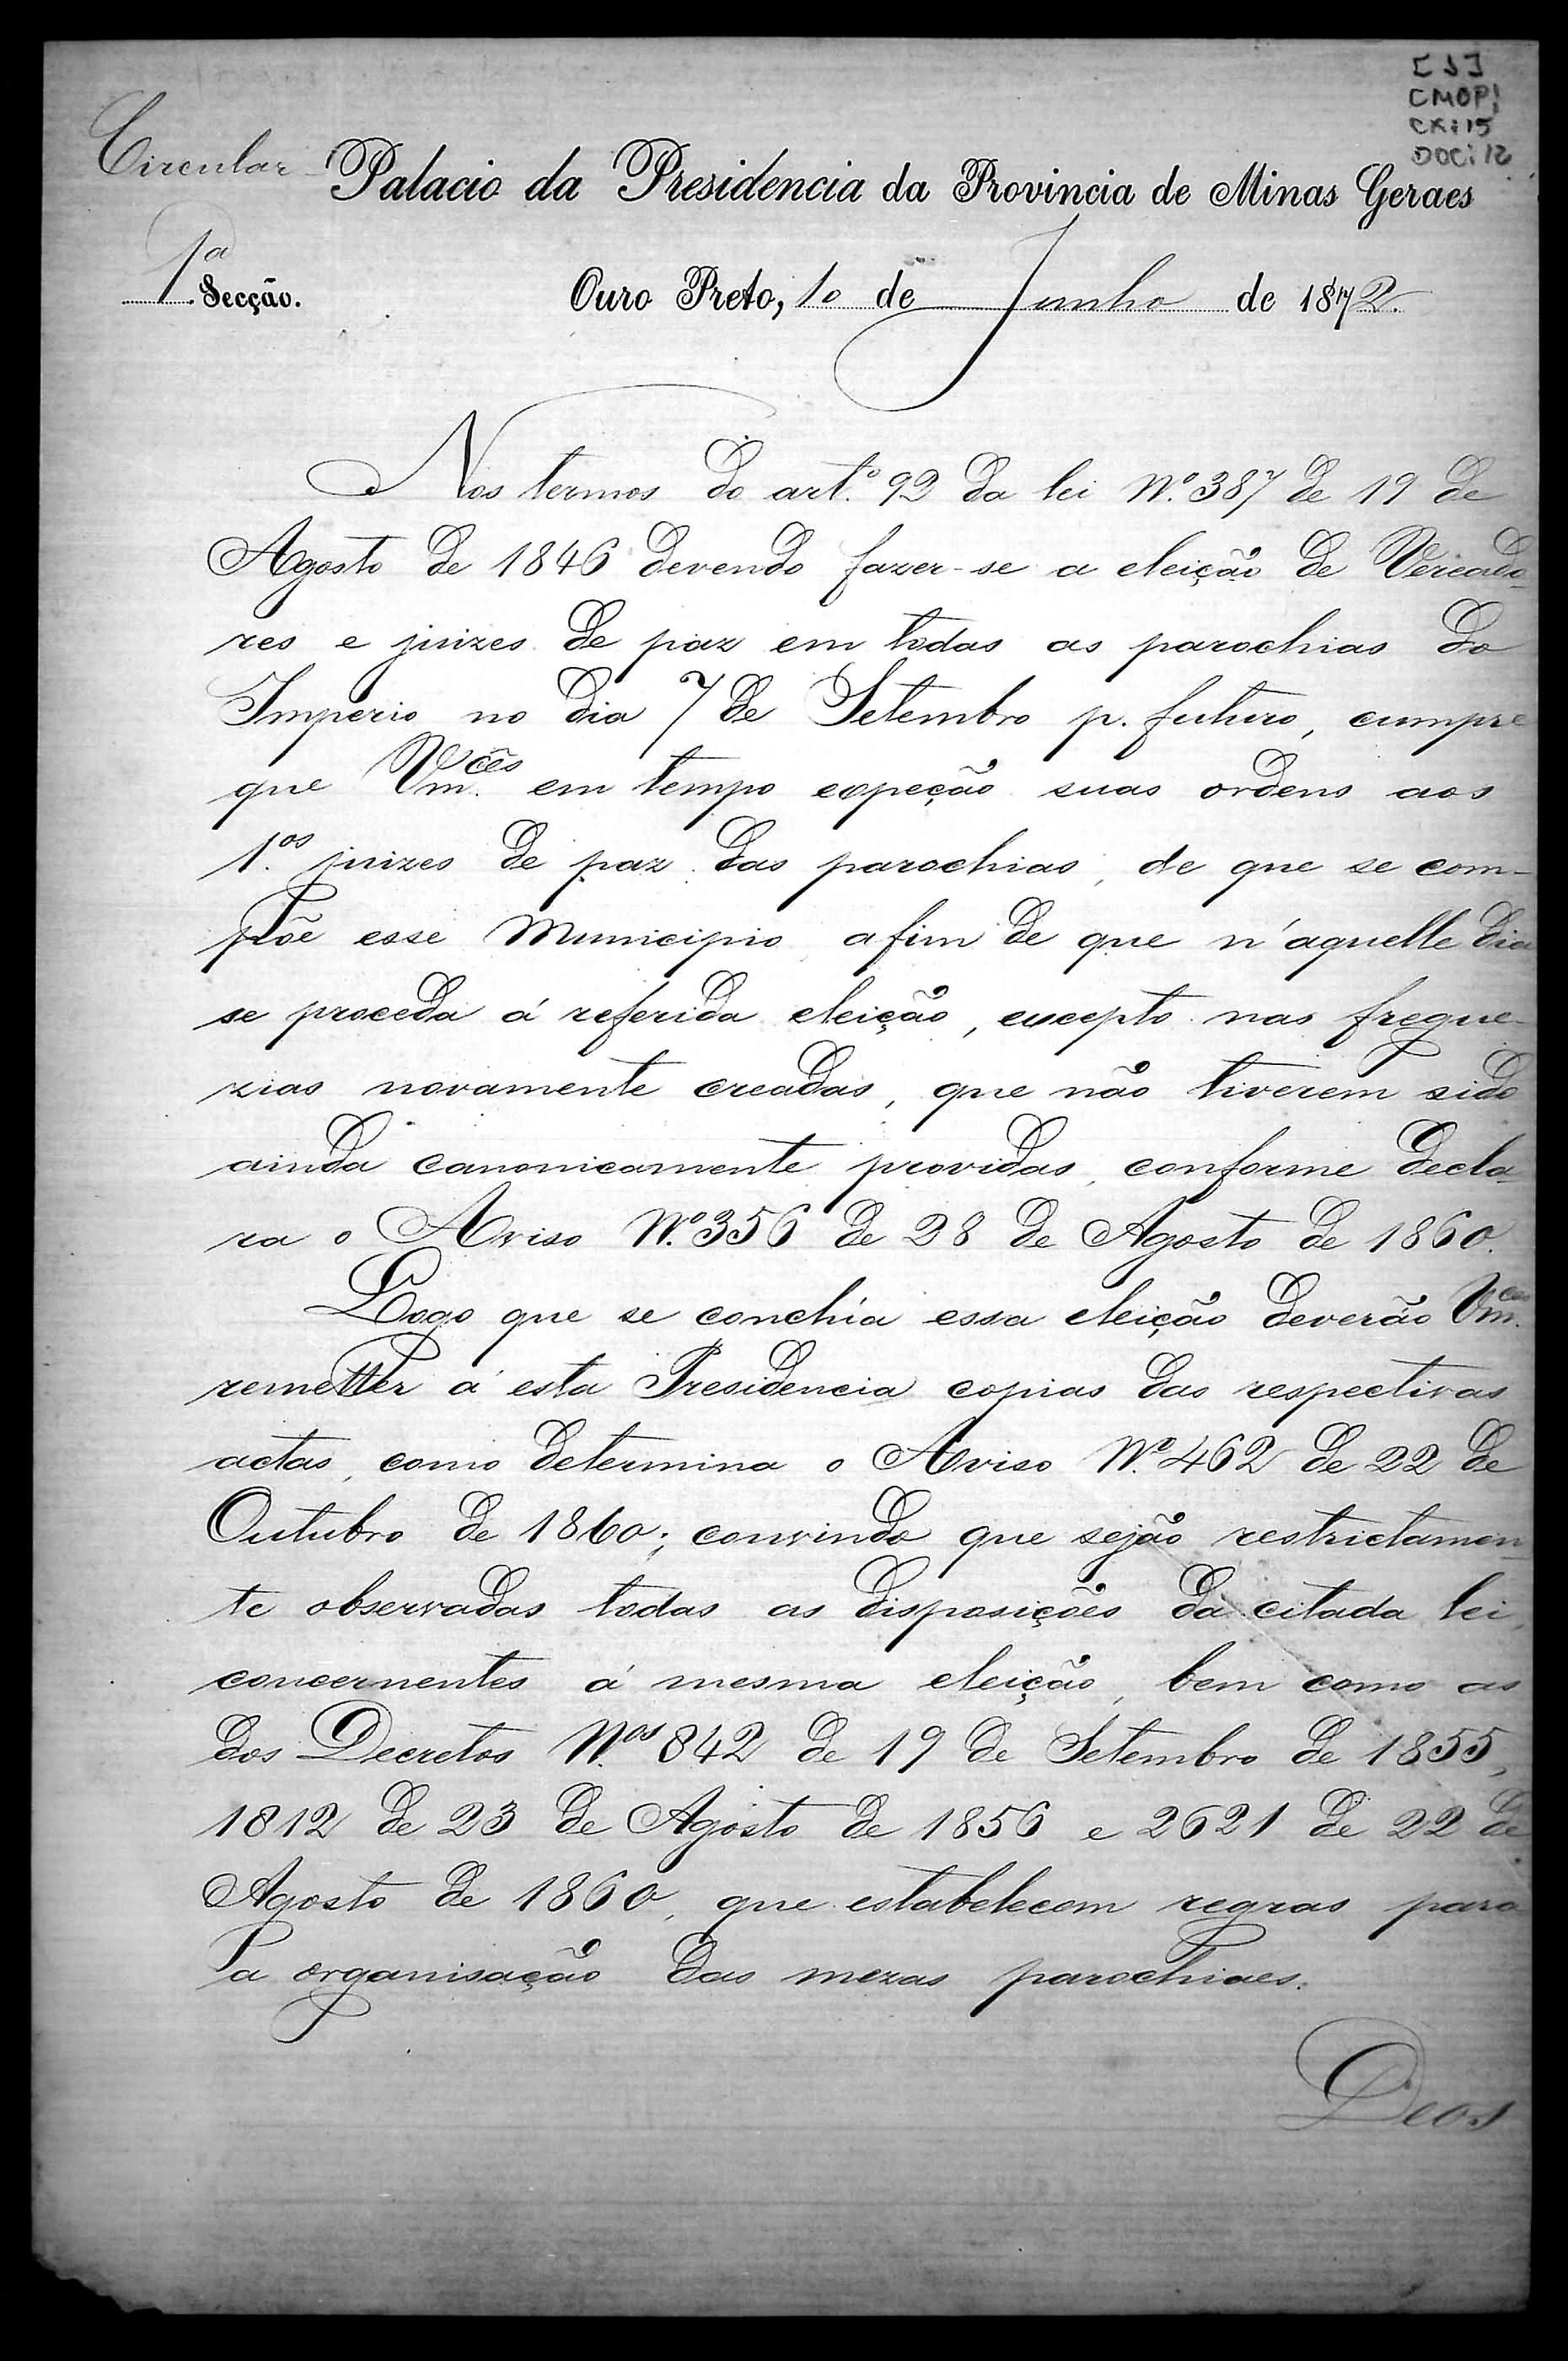 [1]
CMOP;
CX: 15
DOC: 12
Circular Palacio da Presidencia da Provincia de Minas Geraes
1ª Secção. Ouro Preto, 10 de Junho de 1872.
Nos termos do art.º 92 da lei N.º 387 de 19 de
Agosto de 1846 devendo fazer-se a eleição de Vereado-
res e juizes de paz em todas as parochias do
Imperio no dia 7 de Setembro p. futuro, cumpre
que Vm.cês em tempo expeção suas ordens aos
1.os juizes de paz das parochias, de que se com-
põe esse Municipio afim de que n'aquelle dia
se proceda á referida eleição, excepto nas fregue-
zias novamente creadas, que não tiverem sido
ainda canonicamente providas, conforme decla-
ra o Aviso N.º 356 de 28 de Agosto de 1860.
Logo que se conclúa essa eleição deverão Vm.ces
remetter á esta Presidencia copias das respectivas
actas, como determina o Aviso N.º 462 de 22 de
Outubro de 1860; convindo que sejão restrictamen-
te observadas todas as disposições da citada lei,
concernentes á mesma eleição, bem como as
dos Decretos N.os 842 de 19 de Setembro de 1855,
1812 de 23 de Agosto de 1856 e 2621 de 22 de
Agosto de 1860, que estabelecem regras para
a organisação das mezas parochiaes.
Deos